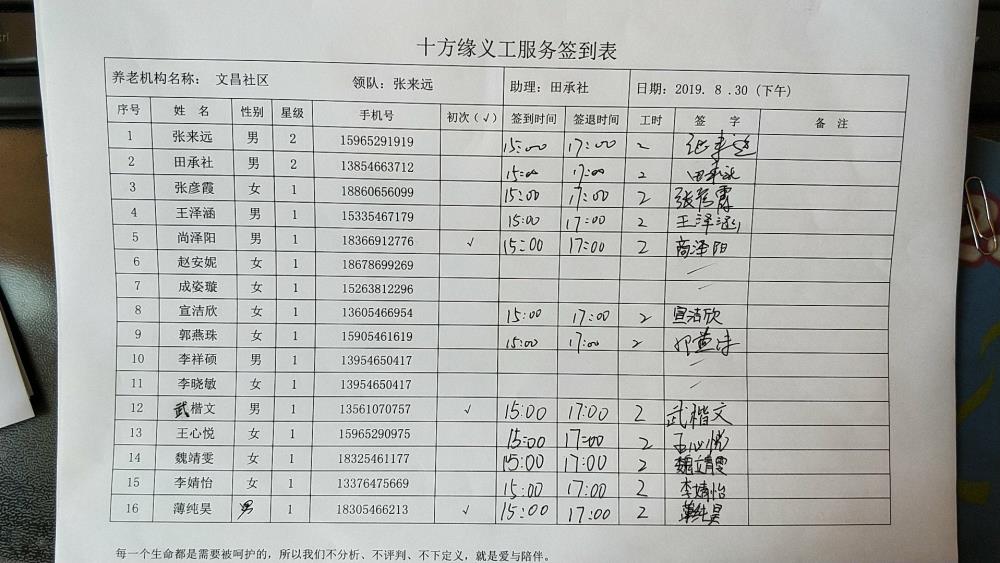 十方缘义工服务签到表
养老机构名称： 文昌社区 领队：张来远 助理：田承社 日期：2019. 8 .30 (下午)
序号 姓 名 性别 星级 手机号 初次（√） 签到时间 签退时间 工时 签 字 备 注
1 张来远 男 2 15965291919 15:00 17:00 2 张来远
2 田承社 男 2 13854663712 15:00 17:00 2 田承社
3 张彦霞 女 1 18860656099 15:00 17:00 2 张彦霞
4 王泽涵 男 1 15335467179 15:00 17:00 2 王泽涵
5 尚泽阳 男 1 18366912776 √ 15:00 17:00 2 商泽阳
6 赵安妮 女 1 18678699269
7 成姿璇 女 1 15263812296
8 宣洁欣 女 1 13605466954 15:00 17:00 2 宣洁欣
9 郭燕珠 女 1 15905461619 15:00 17:00 2 郭燕珠
10 李祥硕 男 1 13954650417
11 李晓敏 女 1 13954650417
12 武楷文 男 1 13561070757 √ 15:00 17:00 2 武楷文
13 王心悦 女 1 15965290975 15:00 17:00 2 王心悦
14 魏靖雯 女 1 18325461177 15:00 17:00 2 魏靖雯
15 李婧怡 女 1 13376475669 15:00 17:00 2 李婧怡
16 薄纯昊 男 1 18305466213 √ 15:00 17:00 2 薄纯昊
每一个生命都是需要被呵护的，所以我们不分析、不评判、不下定义，就是爱与陪伴。